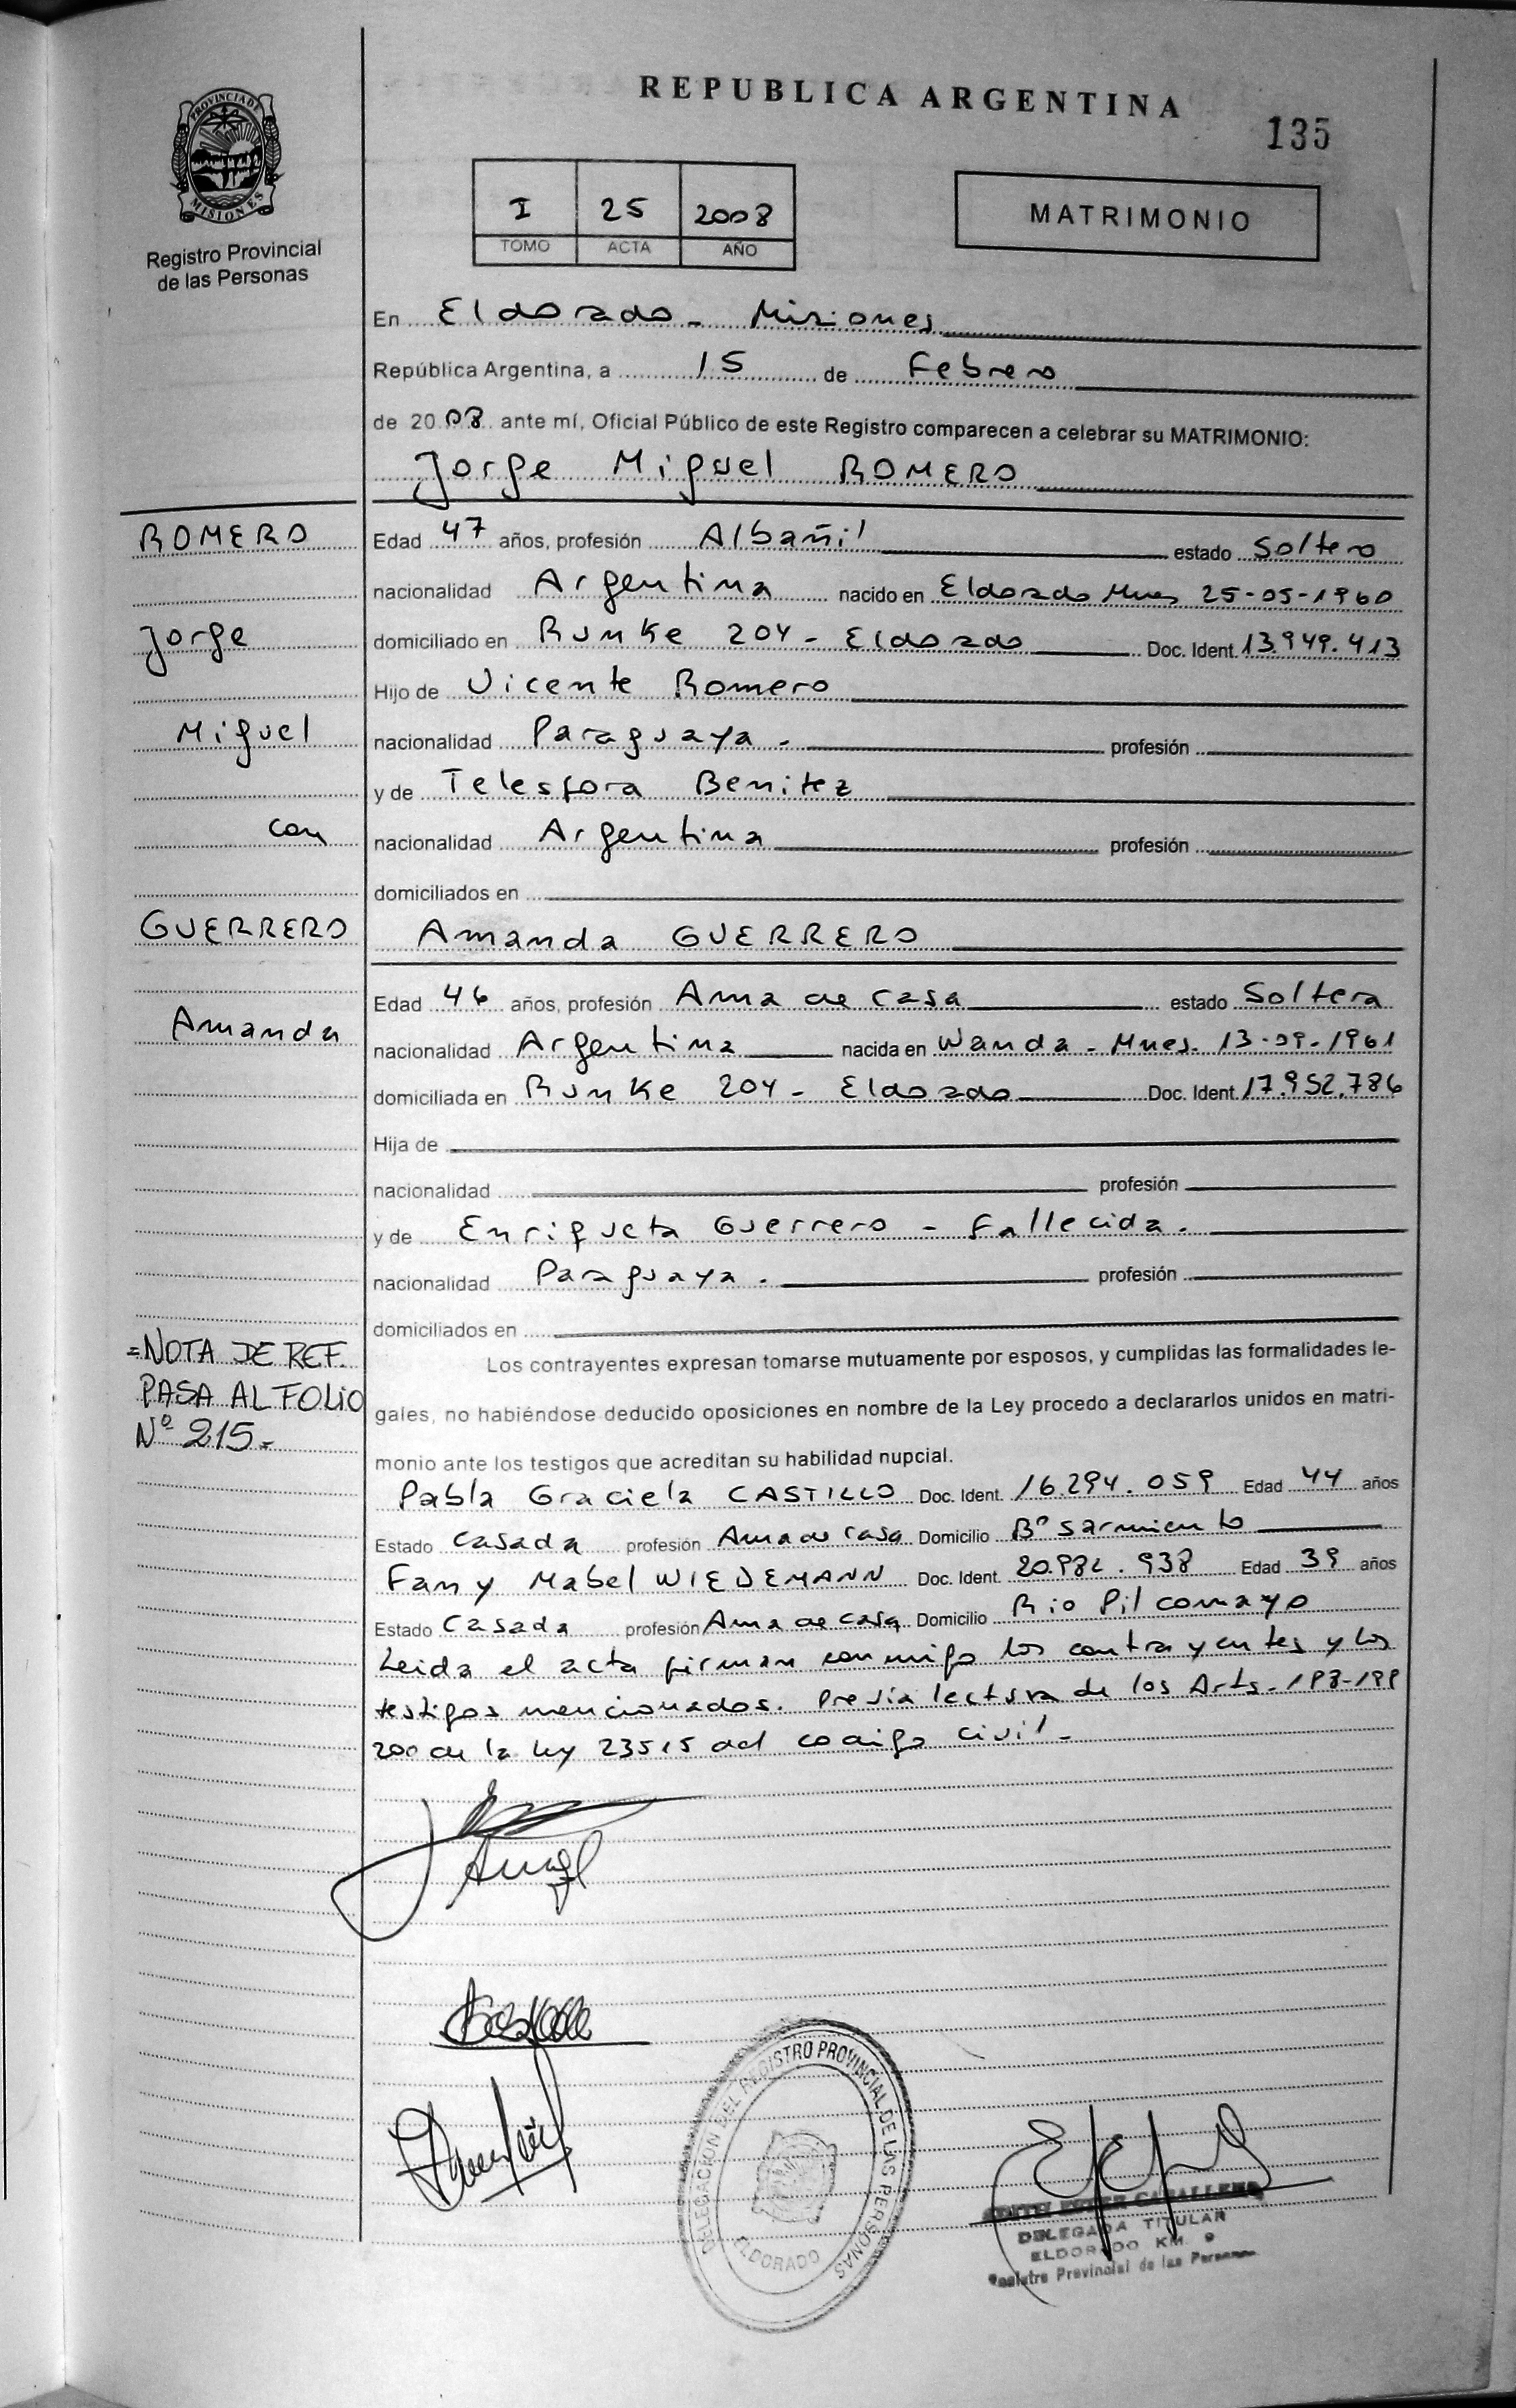 REPUBLICA ARGENTINA
135
PROVINCIA DE
MISIONES
Registro Provincial
de las Personas
I 25 2008
TOMO ACTA AÑO
MATRIMONIO
En Eldorado - Misiones
República Argentina, a 15 de Febrero
de 2008 ante mí, Oficial Público de este Registro comparecen a celebrar su MATRIMONIO:
Jorge Miguel ROMERO
ROMERO
Jorge
Miguel
con
GUERRERO
Amanda
Edad 47 años, profesión Albañil estado Soltero
nacionalidad Argentina nacido en Eldorado Mnes 25-05-1960
domiciliado en Runke 204 - Eldorado Doc. Ident. 13.949.413
Hijo de Vicente Romero
nacionalidad Paraguaya. profesión
y de Telesfora Benitez
nacionalidad Argentina profesión
domiciliados en
Amanda GUERRERO
Edad 46 años, profesión Ama de casa estado Soltera
nacionalidad Argentina nacida en Wanda - Mnes. 13-09-1961
domiciliada en Runke 204 - Eldorado Doc. Ident. 17.952.786
Hija de
nacionalidad profesión
y de Enriqueta Guerrero - Fallecida.
nacionalidad Paraguaya. profesión
domiciliados en
=NOTA DE REF.
PASA AL FOLIO
Nº 215.-
Los contrayentes expresan tomarse mutuamente por esposos, y cumplidas las formalidades le-
gales, no habiéndose deducido oposiciones en nombre de la Ley procedo a declararlos unidos en matri-
monio ante los testigos que acreditan su habilidad nupcial.
Pabla Graciela CASTILLO Doc. Ident. 16.294.059 Edad 44 años
Estado Casada profesión Ama de casa Domicilio Bº Sarmiento
Fany Mabel WIEDEMANN Doc. Ident. 20.982.938 Edad 39 años
Estado Casada profesión Ama de casa Domicilio Rio Pilcomayo
Leida el acta firman conmigo los contrayentes y los
testigos mencionados. Previa lectura de los Arts. 198-199
200 de la ley 23515 del codigo civil -
DELEGACION DEL REGISTRO PROVINCIAL DE LAS PERSONAS
ELDORADO
EDITH ESTER CABALLERO
DELEGADA TITULAR
ELDORADO KM. 9
Registro Provincial de las Personas